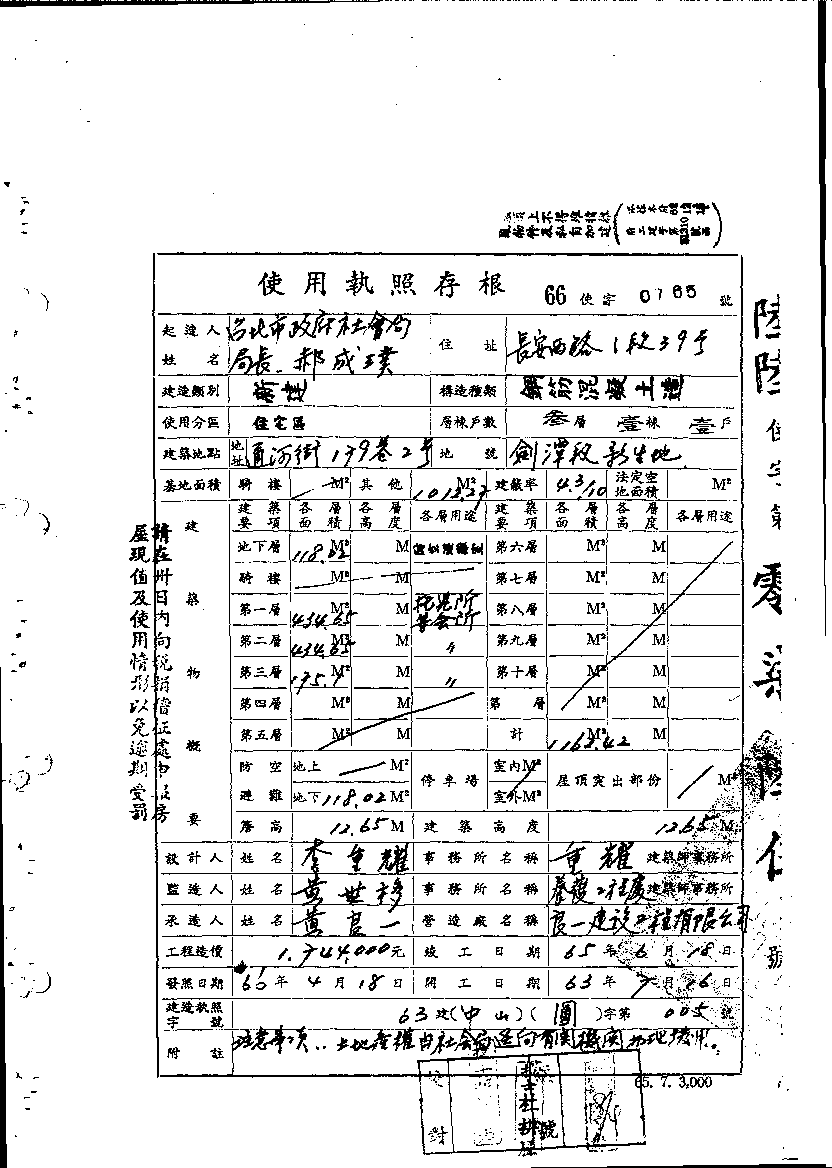 使用執照存根 66 使字 0765 號
起造人姓名 台北市政府社會局 局長 郝成璞 住址 長安西路1段39号
建造類別 新建 構造種類 鋼筋混凝土造
使用分區 住宅區 層棟戶數 叁層 壹棟 壹戶
建築地點 地址 通河街139巷2号 地號 劍潭段新生地
基地面積 騎樓 M² 其他 1012.27 M² 建蔽率 4.3/10 法定空地面積 M²
建築物概要
建築要項 各層面積 各層高度 各層用途 建築要項 各層面積 各層高度 各層用途
地下層 118.02 M² M 第六層 M² M
騎樓 M² M 第七層 M² M
第一層 434.65 M² M 托児所 集會所 第八層 M² M
第二層 434.65 M² M 〃 第九層 M² M
第三層 M² M 〃 第十層 M² M
第四層 M² M 第 層 M² M
第五層 M² M 計 1162.42 M²
防空避難 地上 M² 停車場 室內M² 屋頂突出部份 M²
地下 118.02 M² 室外M²
簷高 12.65 M 建築高度 12.65 M
設計人 姓名 李重耀 事務所名稱 重耀 建築師事務所
監造人 姓名 黃世 事務所名稱 建築師事務所
承造人 姓名 黃良一 營造廠名稱 良一建設工程有限公司
工程造價 1,744,000元 竣工日期 65年6月18日
發照日期 66年4月18日 開工日期 63年 月16日
建造執照字號 63建(中山)(圓)字第 005 號
附註 注意事項：土地產權由社會局逕向有關機關辦理撥用。
65. 7. 3,000
請在卅日內向稅捐稽征處申報房
屋現值及使用情形以免逾期受罰
陸陸使字第零柒陸伍號
校對